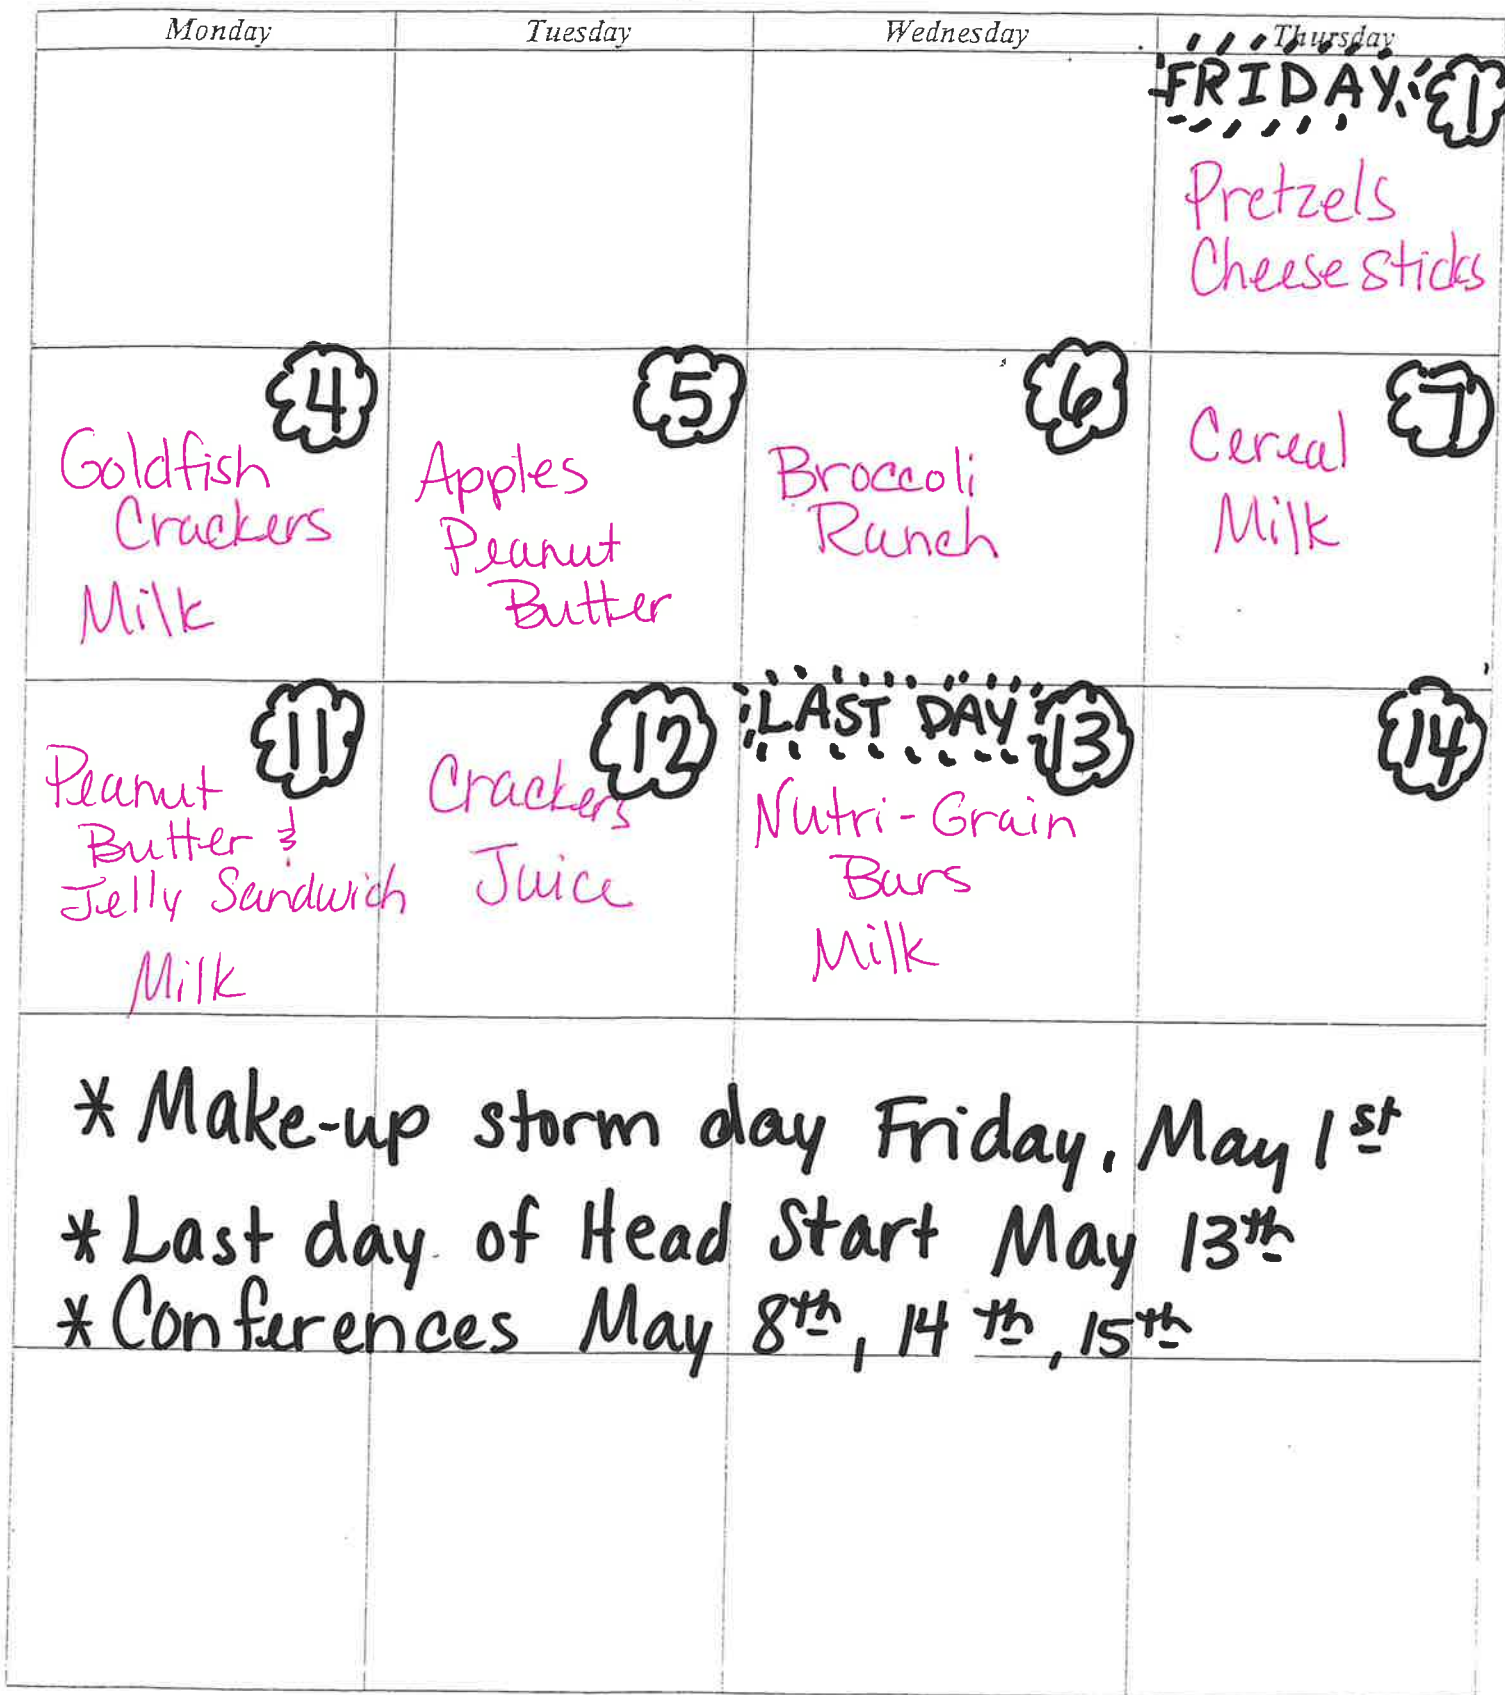 Monday Tuesday Wednesday Thursday
FRIDAY 1
Pretzels
Cheese sticks
4
Goldfish
Crackers
Milk
5
Apples
Peanut
Butter
6
Broccoli
Ranch
7
Cereal
Milk
11
Peanut
Butter &
Jelly Sandwich
Milk
12
Crackers
Juice
LAST DAY 13
Nutri-Grain
Bars
Milk
14
* Make-up storm day Friday, May 1st
* Last day of Head Start May 13th
* Conferences May 8th, 14th, 15th